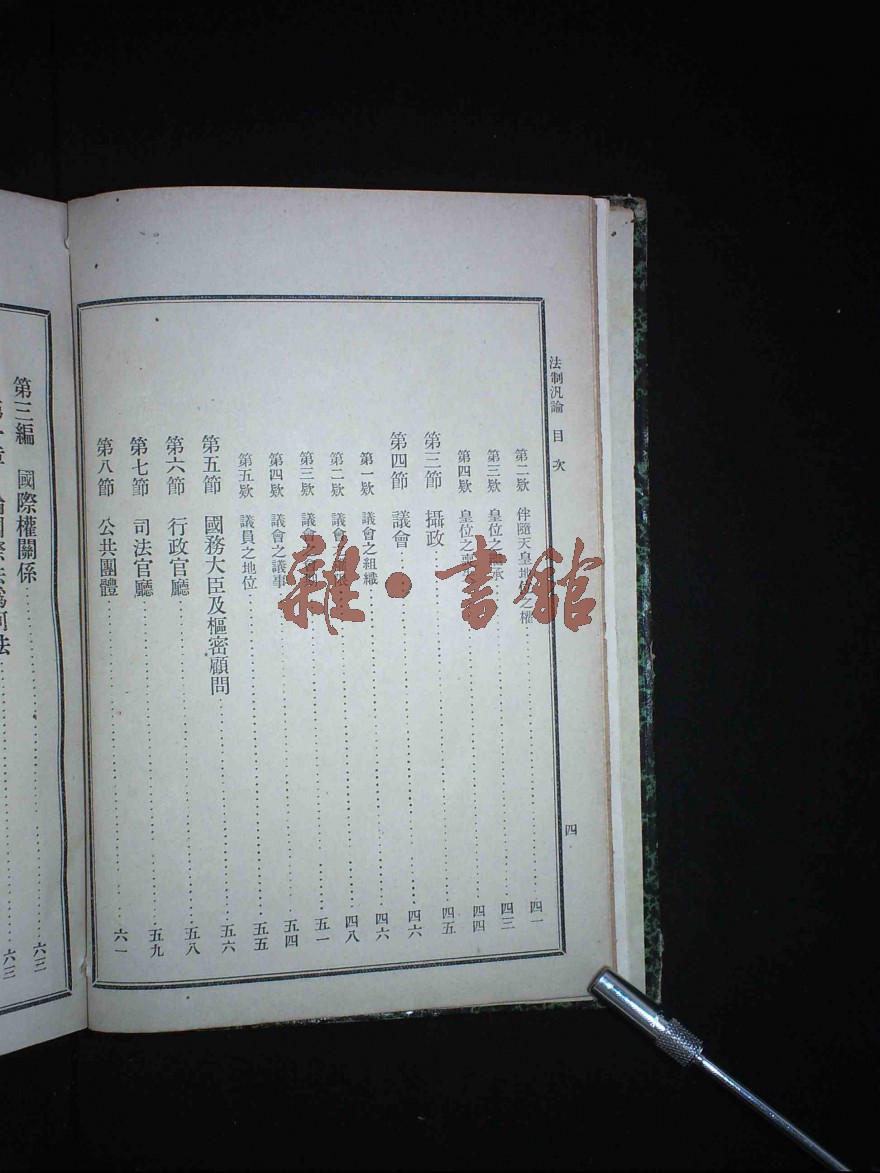 法制汎論 目次
四
第二欵 伴隨天皇地位之權 四一
第三欵 皇位之 承 四三
第四欵 皇位之 四四
第三節 攝政 四五
第四節 議會 四六
第一欵 議會之組織 四六
第二欵 議會 四八
第三欵 議會 五一
第四欵 議會之議事 五四
第五欵 議員之地位 五五
第五節 國務大臣及樞密顧問 五六
第六節 行政官廳 五八
第七節 司法官廳 五九
第八節 公共團體 六一
第三編 國際權關係 六三
六三
雜·書館